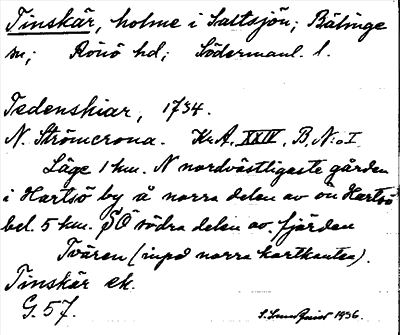 Tinskär, holme i Saltsjön; Bälinge
sn; Rönö hd; Södermanl. l.
Tedenskiar, 1734.
N. Strömcrona. Kr.A. XXIV, B. N:o I.
Läge 1 km. N nordvästligaste gården
i Hartsö by å norra delen av ön Hartsö
bel. 5 km. SÖ södra delen av fjärden
Tvären (inpå norra kartkanten).
Tinskär ek.
G. 57.
1936.